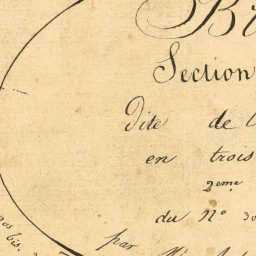 Section
Dite de l
en trois
2eme
du N° 30
par
bis.